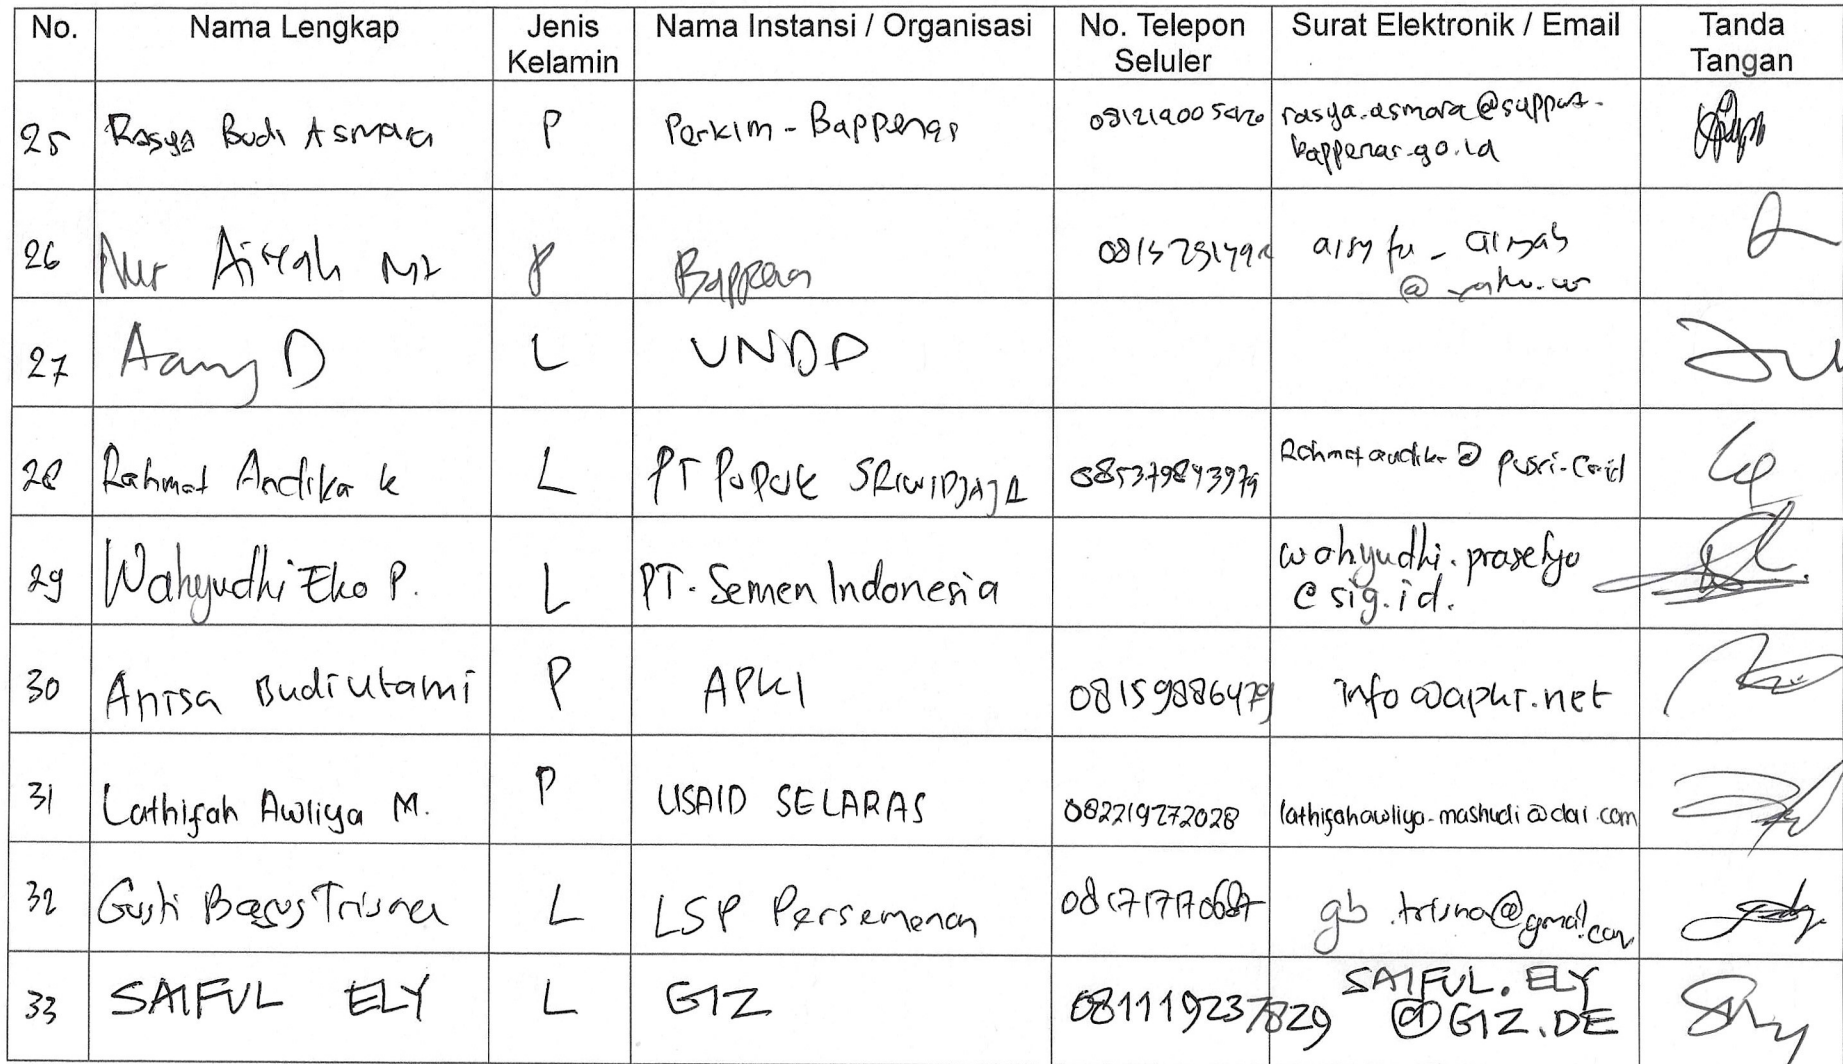 No. Nama Lengkap Jenis Kelamin Nama Instansi / Organisasi No. Telepon Seluler Surat Elektronik / Email Tanda Tangan
25 Rasya Budi Asmara P Perkim - Bappenas rasya.asmara@support.
bappenas.go.id
26 Nur Aisyah P Bappenas
27 Aang D L UNDP
28 Rahmat Andika K L PT PUPUK SRIWIDJAJA 085379843979 Rahmatandika@pusri.co.id
29 Wahyudhi Eko P. L PT. Semen Indonesia wahyudhi.prasetyo
@sig.id.
30 Anisa Budiutami P APKI 08159886479 info@apki.net
31 Lathifah Awliya M. P USAID SELARAS 082219272028 lathifahawliya-mashudi@dai.com
32 Gusti Bagus Trisna L LSP Persemenan gb.trisna@gmail.com
33 SAIFUL ELY L GIZ 081119237829 SAIFUL.ELY
@GIZ.DE